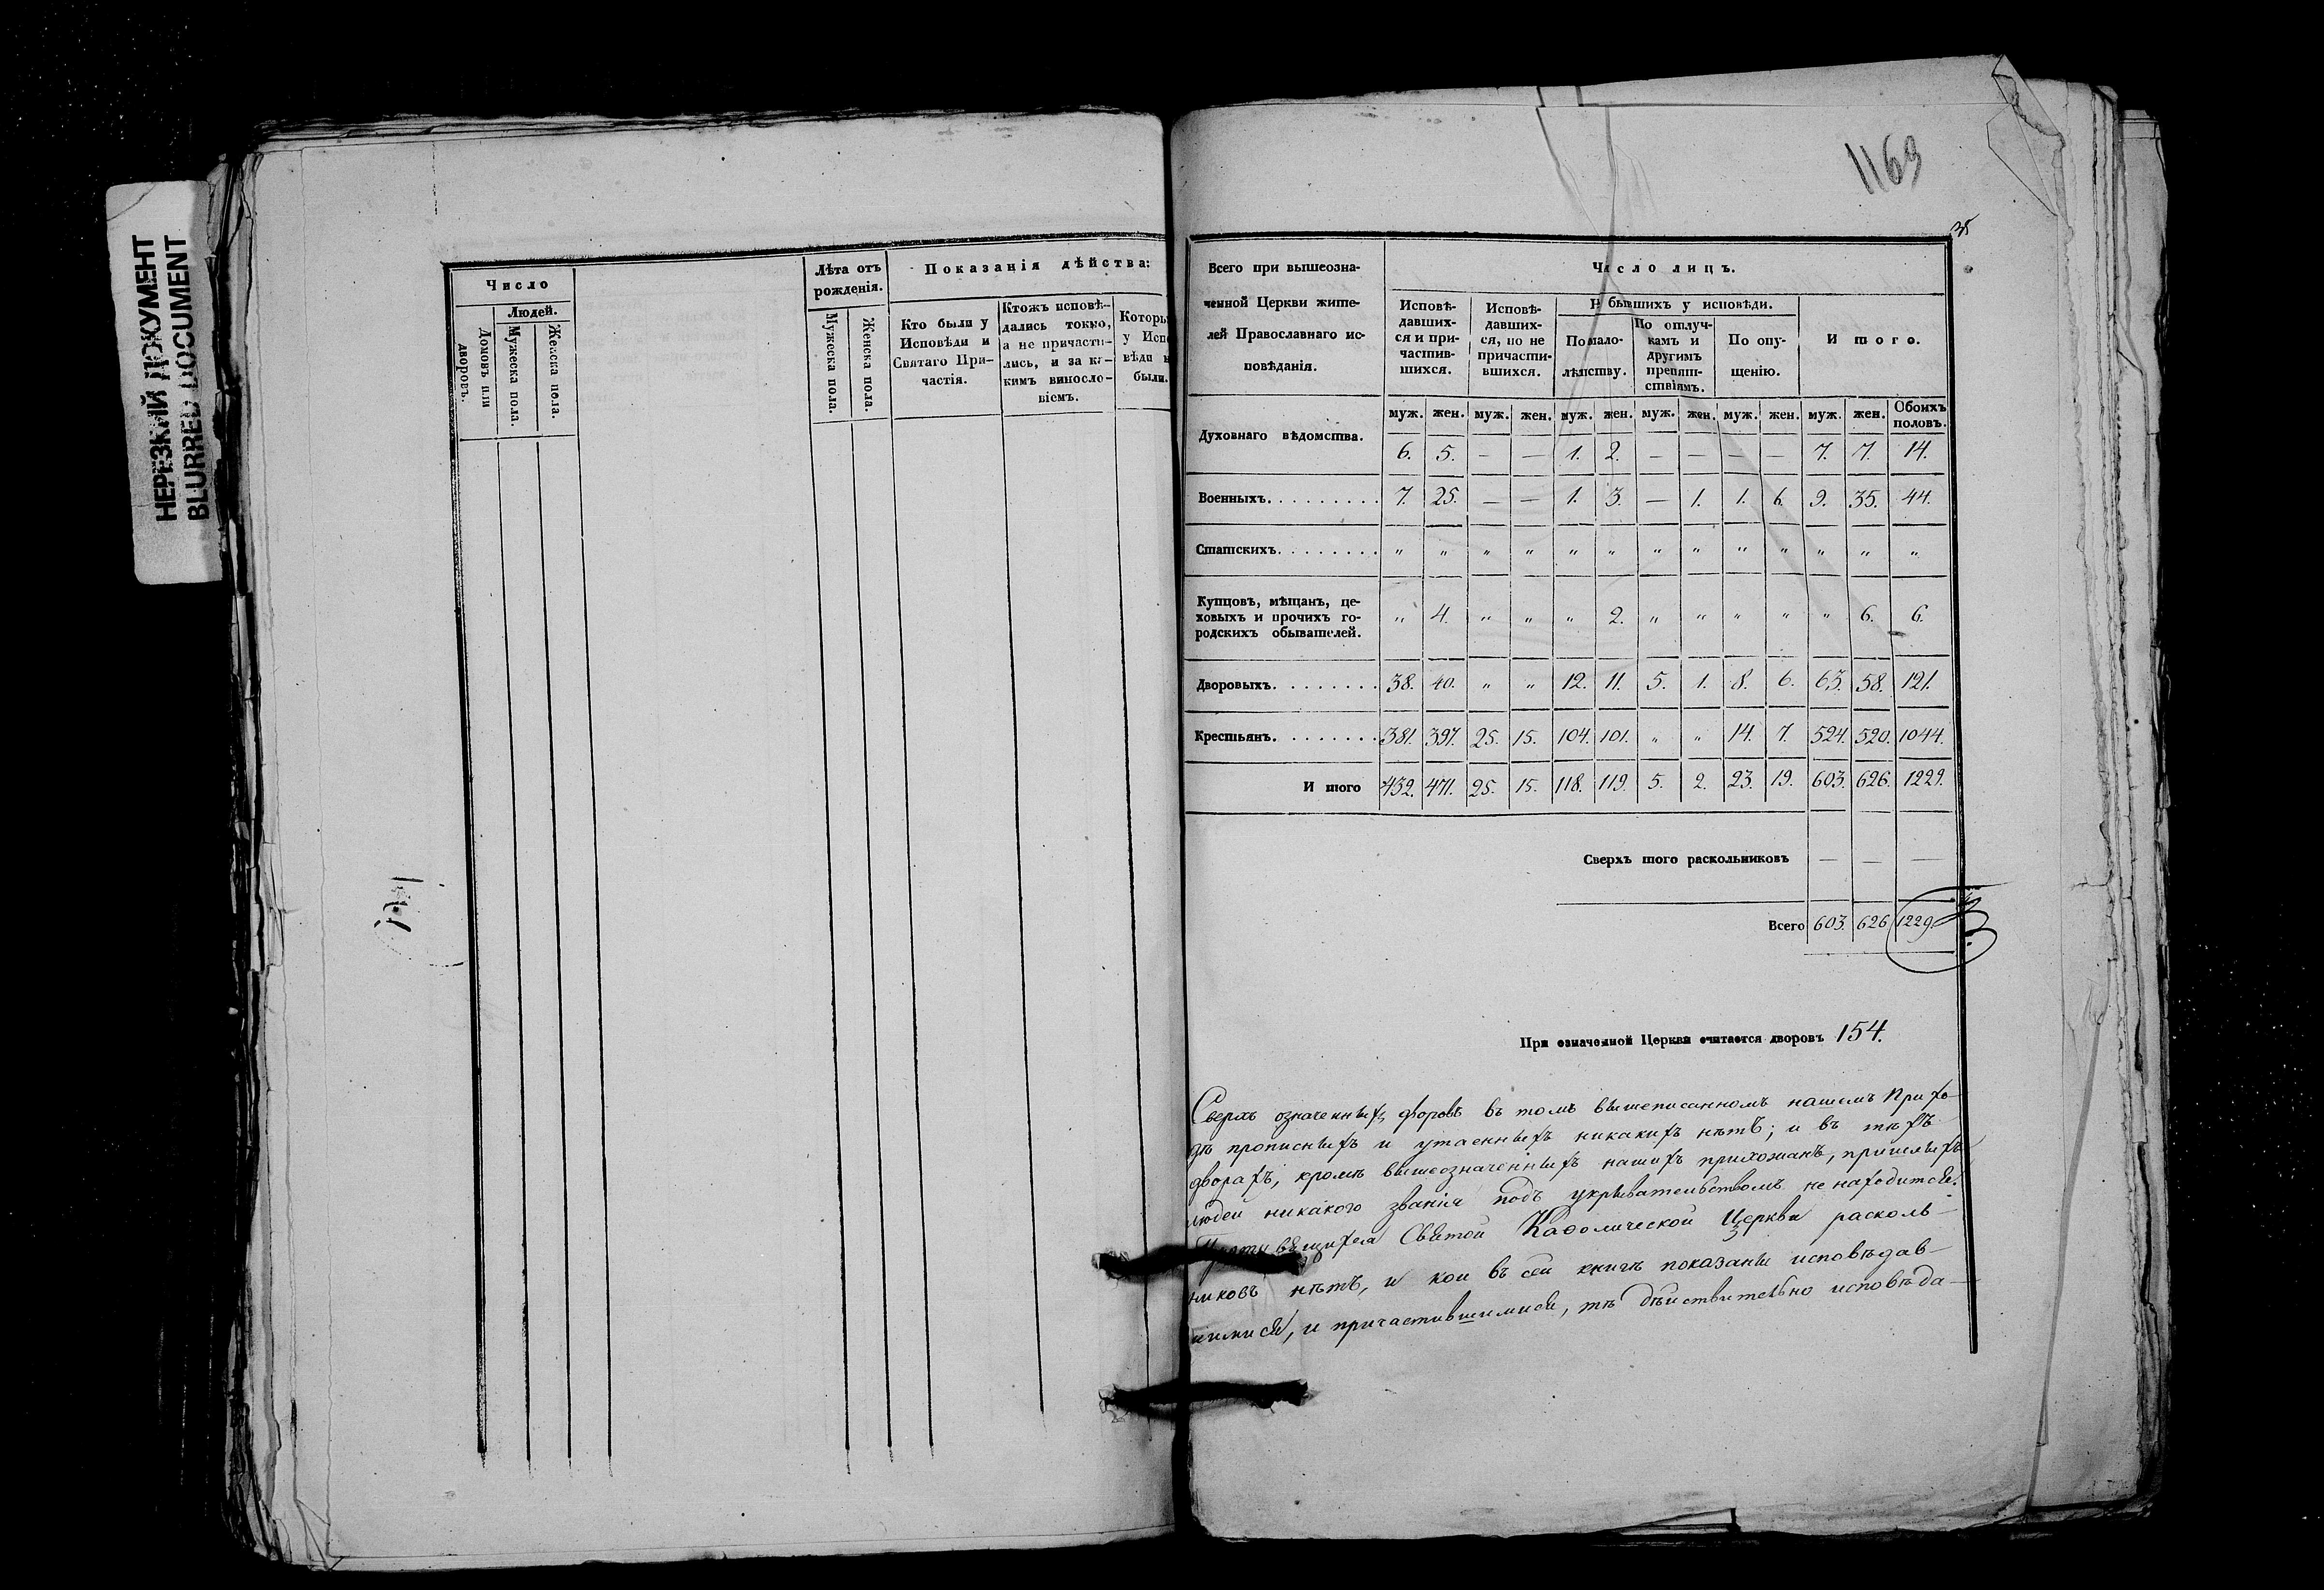 НЕРЕЗКИЙ ДОКУМЕНТ
BLURRED DOCUMENT
Число
Домовъ или дворовъ.
Людей.
Мужеска пола.
Женска пола.
Лѣта отъ
рожденія.
Мужеска пола.
Женска пола.
Показанія дѣйства:
Кто были у
Исповѣди и
Святаго При-
частія.
Ктожъ исповѣ-
дались токмо,
а не причасти-
лись, и за ка-
кимъ винос­ло-
віемъ.
Которы
у Испо
вѣди н
были.
1169
Всего при вышеозна-
ченной Церкви жите-
лей Православнаго ис-
повѣданія.
Число лицъ.
Исповѣ-
давших-
ся и при-
частив-
шихся.
Исповѣ-
давших-
ся, но не
причасти-
вшихся.
Н бывшихъ у исповѣди.
По мало-
лѣтству.
По отлуч-
камъ и
другимъ
препят-
ствіямъ.
По опу-
щенію.
И того.
муж. жен. муж. жен. муж. жен. муж. жен. муж. жен. муж. жен. Обоихъ половъ.
Духовнаго вѣдомства. 6. 5. — — 1. 2. — — — — 7. 7. 14.
Военныхъ. 7. 25. — — 1. 3. — 1. 1. 6. 9. 35. 44.
Статскихъ. " " " " " " " " " " " " "
Купцовъ, мѣщанъ, це-
ховыхъ и прочихъ го-
родскихъ обывателей. " 4. " " " 2. " " " " " 6. 6.
Дворовыхъ. 38. 40. " " 12. 11. 5. 1. 8. 6. 63. 58. 121.
Крестьянъ. 381. 397. 25. 15. 104. 101. " " 14. 7. 524. 520. 1044.
И того 432. 471. 25. 15. 118. 119. 5. 2. 23. 19. 603. 626. 1229.
Сверхъ того раскольниковъ — — —
Всего 603. 626 1229.
При означенной Церкви считается дворовъ 154.
Сверхъ означенныхъ дворовъ въ томъ вышеписанномъ нашемъ Прихо-
дѣ прописныхъ и утаенныхъ никакихъ нѣтъ; и въ тѣхъ
дворахъ, кромѣ вышеозначенныхъ нашихъ прихожанъ, пришлыхъ
людей никакого званія подъ укрывательствомъ не находится.
Святой Каѳолической Церкви расколь-
никовъ нѣтъ, и кои въ сей книгѣ показаны исповѣдав-
шимися, и причастившимися, тѣ дѣйствительно исповѣда-